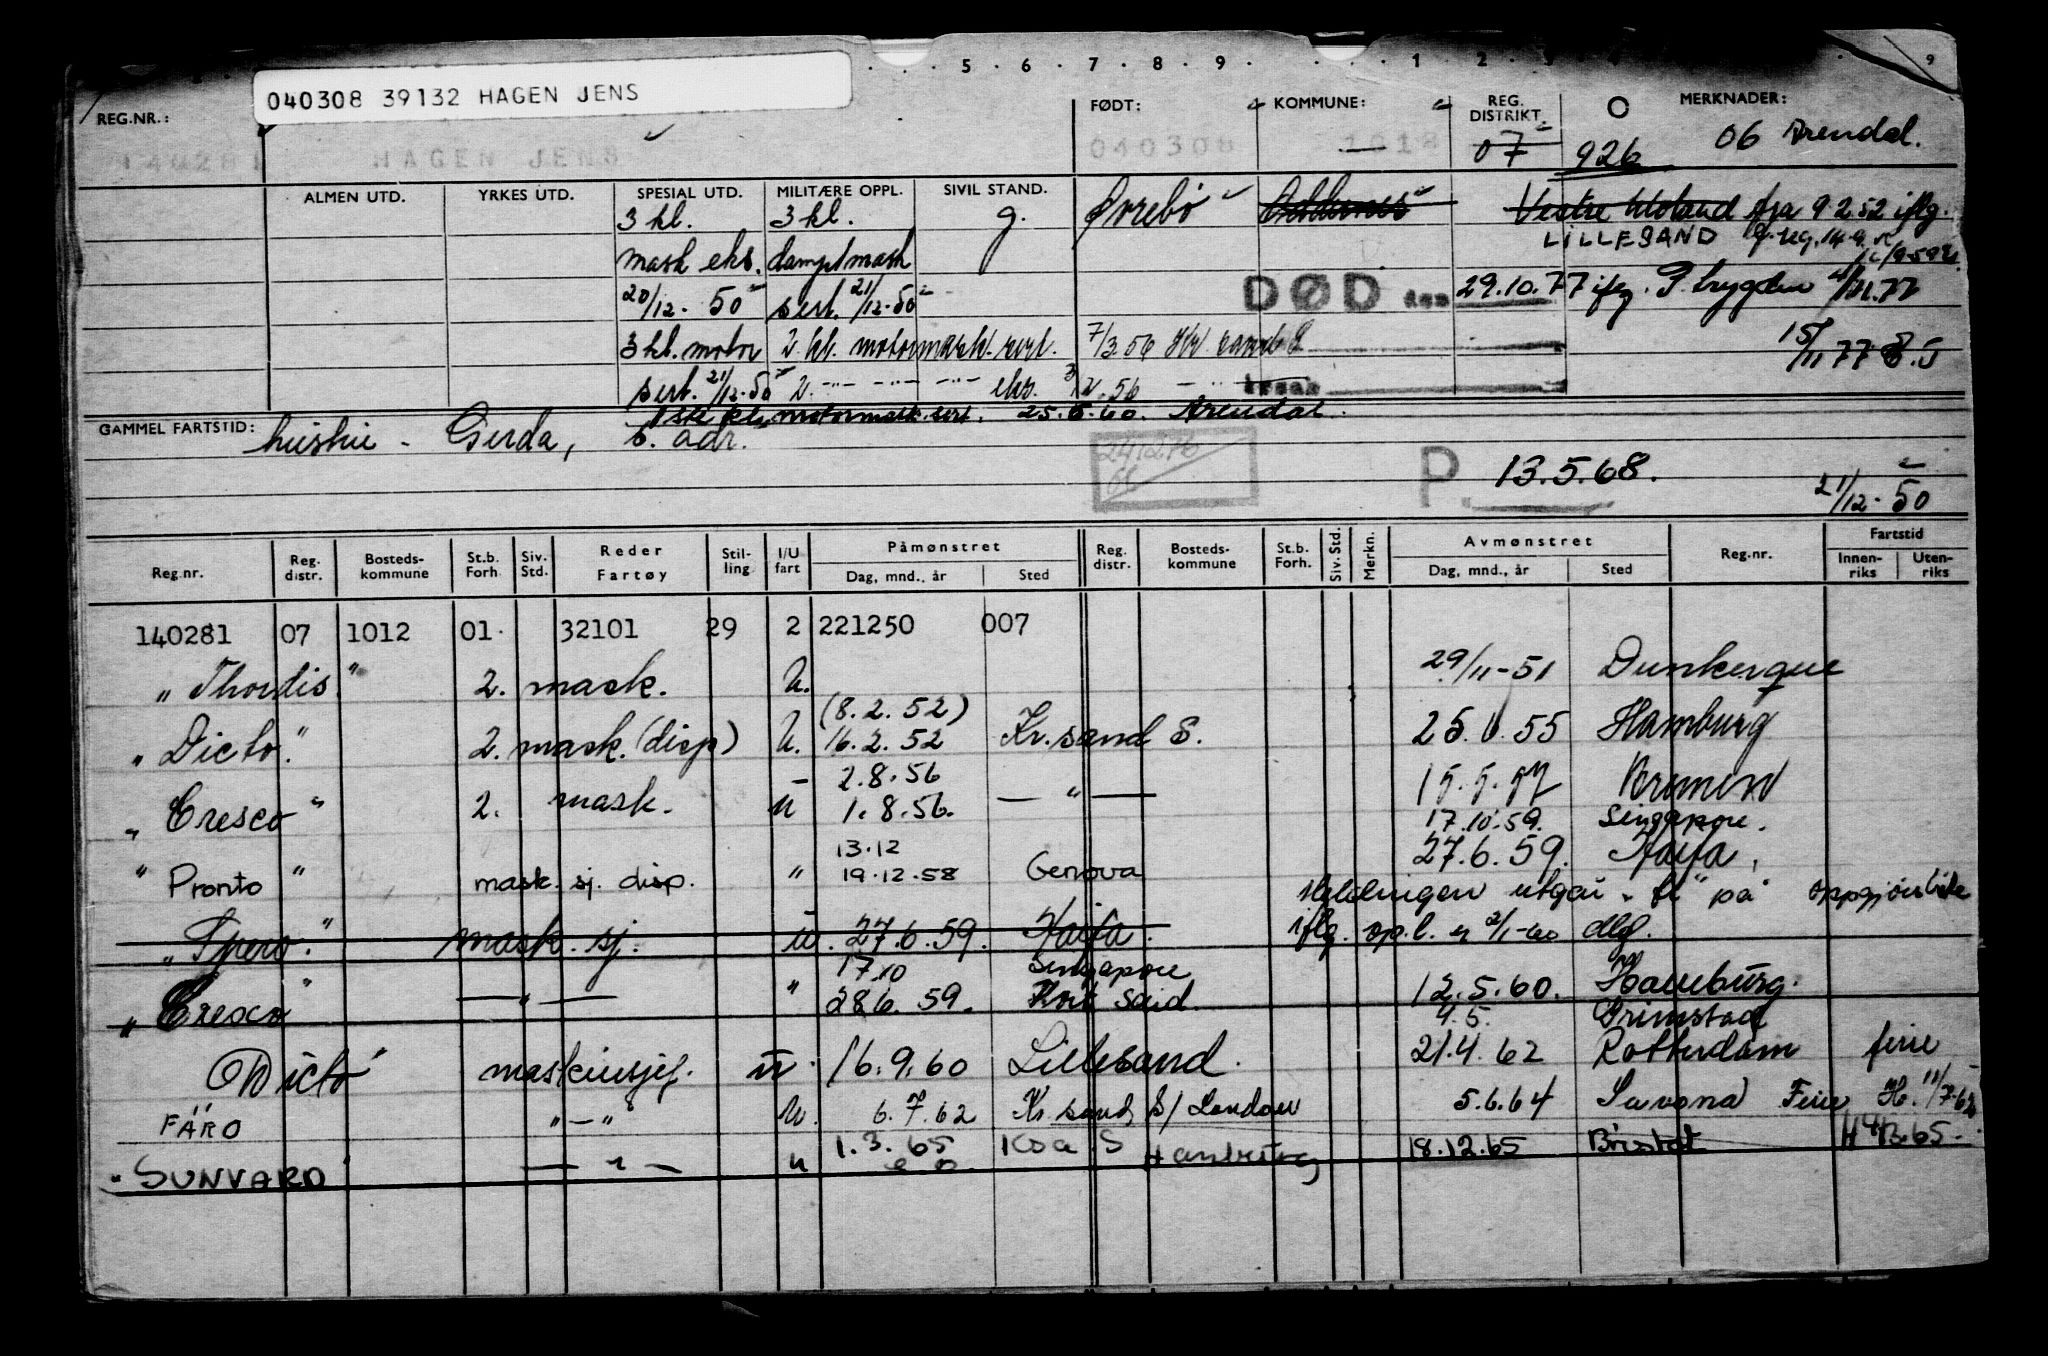 5 . 6 . 7 . 8 . 9 . 1 . 2 . 3 9
040308 39132 HAGEN JENS
REG.NR.: FØDT: KOMMUNE: REG. DISTRIKT. O MERKNADER:
140281 HAGEN JENS 040308 1018 07 926 06 Arendal.
ALMEN UTD. YRKES UTD. SPESIAL UTD. MILITÆRE OPPL. SIVIL STAND.
3 kl. 3 kl. g. Øvrebö Oddernes Vestre Moland fra 9 2 52 iflg.
LILLESAND
mask eks. dampmask
20/12-50 sert. 21/12-50 DØD den 29.10.77 iflg. P. trygden
3 kl. motor 2. kl. motormask. sert. 7/3.56 15/11 77
sert. 21/12-50 2. -"- -"- -"- eks. 56
1ste kl. motormask. sert. 25.5.60. Arendal.
GAMMEL FARTSTID: hustru - Gerda, s. adr.
241276
P. 13.5.68.
21/12-50
Reg.nr. Reg. distr. Bosteds-kommune St.b. Forh. Siv. Std. Reder Fartøy Stil-ling I/U fart Påmønstret Dag, mnd., år Sted Reg. distr. Bosteds-kommune St.b. Forh. Siv. Std. Merkn. Avmønstret Dag, mnd., år Sted Reg.nr. Fartstid Innen-riks Uten-riks
140281 07 1012 01 32101 29 2 221250 007
"Thordis" 2. mask. U. 29/11-51 Dunkerque
(8.2.52)
"Dicto" 2. mask. (disp) U. 16.2.52 Kr.sand S. 25.1.55 Hamburg
2.8.56
"Cresco" 2. mask. U 1.8.56. — " — 15.5.57 Bremen
17.10.59. Singapore.
13.12 27.6.59. Haifa.
"Pronto" mask. sj. disp. " 19.12.58 Genova
Meldingen utgår
"Spero" mask. sj. u. 27.6.59. Haifa. iflg. op.l. 2/1-60
17.10 Singapore
"Cresco" — " — " 28.6.59. Port Said. 12.5.60. Hamburg.
4.5. Grimstad
Dicto maskinsjef. u. 16.9.60 Lillesand. 21.4.62 Rotterdam ferie
FÄRO "-" U. 6.7.62 Kr sand S/ London 5.6.64 Savona Ferie
"SUNVARD" — " — u 1.3.65 Ksa S Hamburg 18.12.65 Bristol